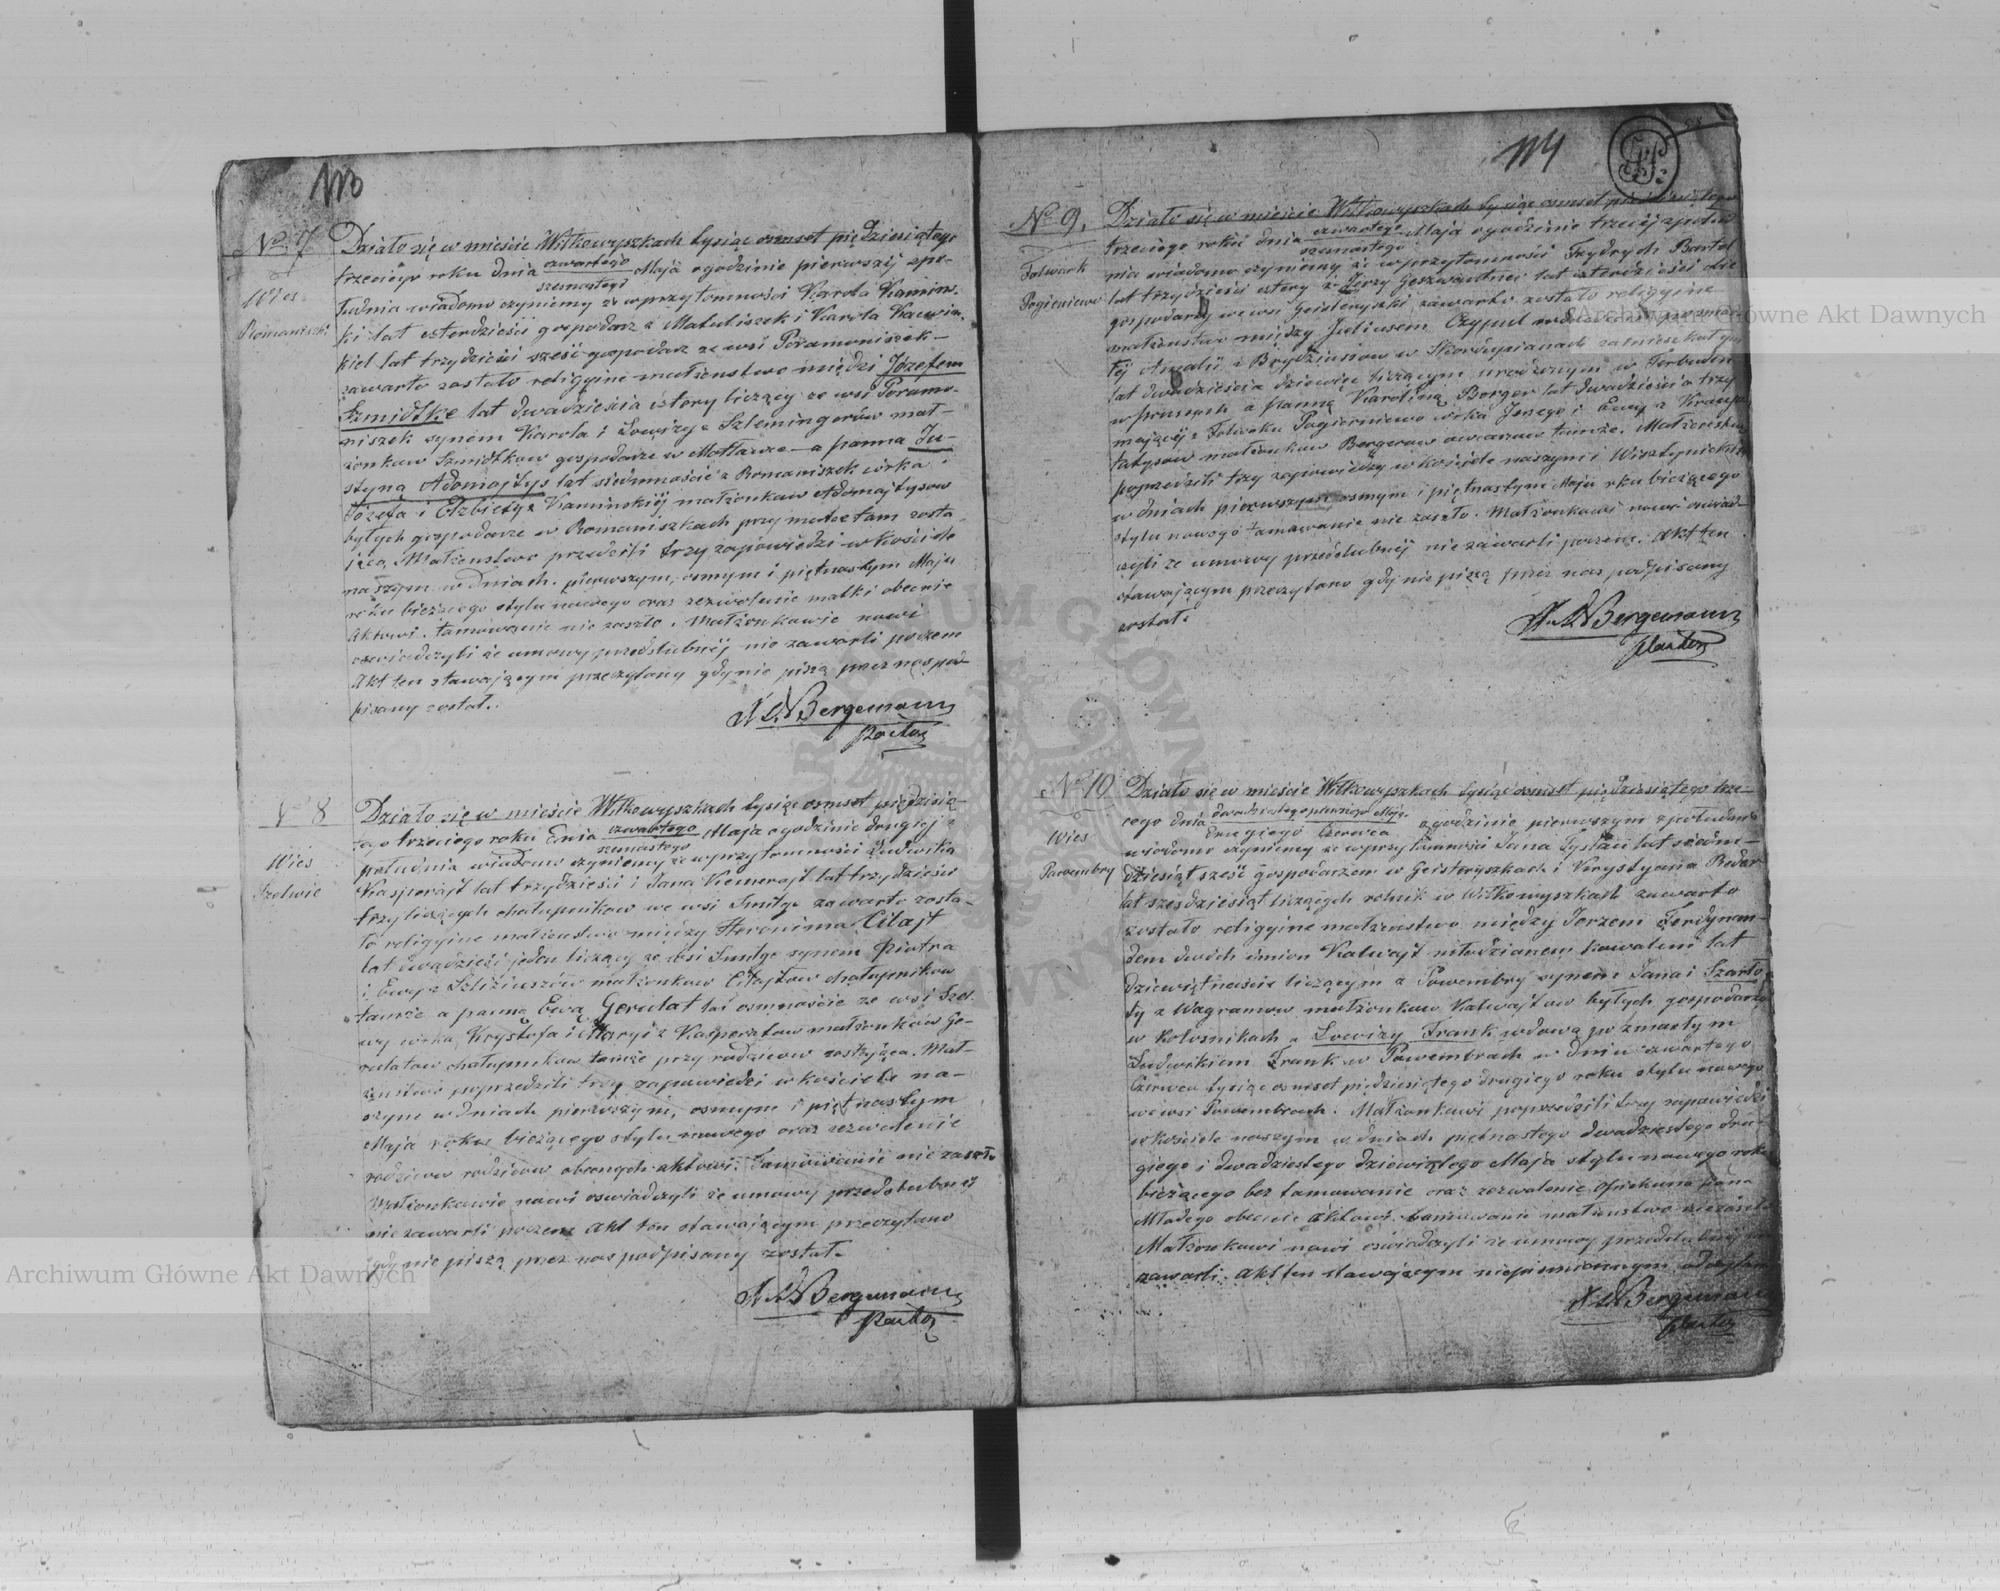 113
No 7
Wies
Romaniszki
Działo się w mieście Wiłkowyszkach tysiąc osmset piędziesiątego
trzeciego roku dnia czwartego szesnastego Maja o godzinie pierwszej zpo-
łudnia wiadomo czyniemy że w przytomności Karola Kamins-
ki lat czterdzieści gospodarz z Matuliszek i Karola
kiel lat trzydzieści sześć gospodarz ze wsi Poramoniszek –
zawarto zostało religijne małżenstwo miedzi Józefem
Szmidtke lat dwadzieścia cztery liczący ze wsi Poramo-
niszek synem Karola i Lowizy z Szlemingerów mał-
żonkow Szmidtkow gospodarze w – a panna Ju-
styna Adomajtys lat siedmnaście z Romaniszek córka
Józefa i Elżbiety z Kaminskiej małżonkow Adomajtysow
byłych gospodarze w Romaniszkach przy matce tam zosta
jąca, Małżenstwo przedzili trzy zapowiedzi w kościele
naszym w dniach pierwszym, osmym i piętnastym Maja
roku bieżącego stylu nowego oraz zezwolenie matki obecnie
Aktowi. tamowanie nie zaszło. Małżonkowie nowi
oswiadczyli że umowy przedslubnej nie zawarli poczem
Akt ten stawającym przeczytany gdy nie piszą przez nas pod-
pisany został.
Bergemann
Pastor
No 8
Wies
Szelwie
Działo się w mieście Wiłkowyszkach tysiąc osmset piędziesią-
tego trzeciego roku dnia czwartego szesnastego Maja o godzinie drugiej z
południa wiadomo czyniemy że w przytomności Ludwika
Kasperajt lat trzydzieści i Jana Kiemerajt lat trzydzieści
trzy liczących chałupnikow we wsi Smilge zawarto zosta-
ło religijne małżenstwo między Heronima Citajt
lat dwadzieści jeden liczący ze wsi Smilge synem Piotra
i Ewy z Szliziuszów małżonkow Citajtow chałupnikow
tamże a panną Ewą Gerulat lat osmnaście ze wsi Szel-
wy córka Krystofa i Maryi z małżonków Ge-
rulatow chałupnikow tamże przy rodzicow zostająca. Mał-
żenstwo poprzedzili trzy zapowiedzi w kościele na-
szym w dniach pierwszym, osmym i piętnastym
Maja roku bieżącego stylu nowego oraz zezwolenie
rodzicow obecnych aktowi. Tamowanie nie zaszło
Małżonkowie nowi oswiadczyli że umowy przedslubnej
nie zawarli poczem Akt ten stawającym przeczytano
gdy nie piszą przez nas podpisany został.
Bergemann
Pastor
114
No 9.
Folwark
Pogierniewo
Działo się w mieście Wiłkowyszkach tysiąc osmset
trzeciego roku dnia czwartego szesnastego Maja o godzinie trzeciej z połud
nia wiadomo czyniemy że w przytomności Frydrych Bartel
lat trzydzieści cztery i Jerzy lat czterdzieści
gospodarzy we wsi zawarto zostało religijne
małżenstwo między Juliusem Czypul
tej Amalii z w zamieszkałym
lat dwadzieścia dziewięc liczącym urodzonym w
w prusiech a panną Karoliną Berger lat dwadzieścia trzy
mającej z Folwarku Pogierniewo córka Jerzego i Ewy z
małżonkow Bergerow tamże. Małżenstwo
poprzedzili trzy zapowiedzy w kościele naszym i
w dniach pierwszym osmym i piętnastym Maja roku bieżącego
stylu nowego tamowanie nie zaszło. Małżonkowi nowi oswiad-
czyli że umowy przedslubnej nie zawarli poczem. Akt ten
stawającym przeczytano gdy nie piszą przez nas podpisany
został.
Bergemann
Pastor
No 10
Wies
Pawembry
Działo się w mieście Wiłkowyszkach tysiąc osmset piędziesiątego trze-
ciego dnia dwudziestego pierwszego Maja Drugiego Czerwca o godzinie pierwszym z południa
wiadomo czyniemy że w przytomności Jana lat siedm-
dziesiąt sześć gospodarzem w i Krystyana
lat sześdziesiąt liczących rolnik w Wiłkowyszkach zawarto
zostało religijne małżenstwo miedzy Jerzem Ferdynan-
dem dwóch imion Kalwajt młodzianem kawalem lat
dziewiętnaście liczącym z Powembry synem Jana i Szarlo-
ty z Wagramow małżonkow Kalwajtow byłych gospodarzy
w Kolosnikach a Lowizy Frank wdową po zmarłym
Ludwikiem Frank w Powembrach w dniu czwartego
Czerwca tysiąc osmset pięćdziesiątego drugiego roku stylu nowego
we wsi Powembrach. Małżonkowi poprzedzili trzy zapowiedzi
w kościele naszym w dniach piętnastego dwadziestego dru-
giego i dwadziestego dziewiątego Maja stylu nowego roku
bieżącego bez tamowanie oraz zezwolenie Opiekuna Pana
Młodego obecnie Aktowi. tamowanie małżenstwo nie zaszło
Małżonkowi nowi oswiadczyli że umowy przedslubnej nie
zawarli. Akt ten stawającym niepismiennym
Bergemann
Pastor
ARCHIWUM GŁÓWNE AKT DAWNYCH
Archiwum Główne Akt Dawnych
Archiwum Główne Akt Dawnych